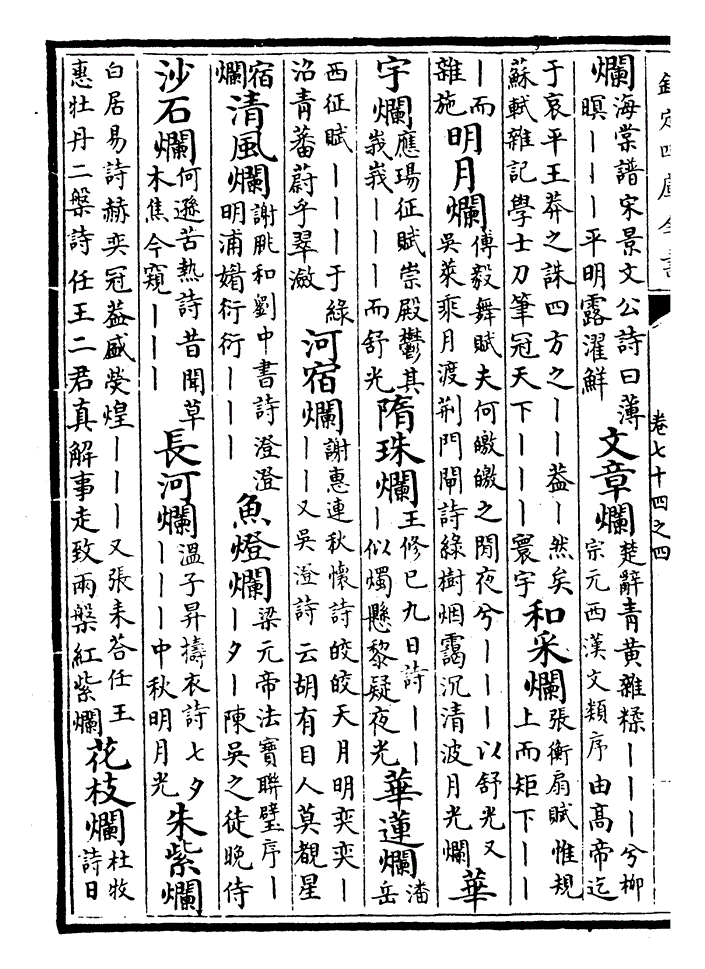 欽定四庫全書
卷七十四之四
爛海棠譜宋景文公詩曰薄暝丨丨丨平明露濯鮮文章爛楚辭青黃雜糅丨丨丨兮柳宗元西漢文類序由髙帝迄
于哀平王莽之誅四方之丨丨葢丨然矣蘇軾雜記學士刀筆冠天下丨丨丨寰宇和采爛張衡扇賦惟規上而矩下丨丨
丨而雜施明月爛傅毅舞賦夫何皦皦之閒夜兮丨丨丨以舒光又吳萊乘月渡荆門閘詩綠樹烟靄沉清波月光爛華
宇爛應瑒征賦崇殿鬱其峩峩丨丨丨而舒光隋珠爛王修已九日詩丨丨丨似燭懸黎疑夜光華蓮爛潘岳
西征賦丨丨丨于綠沼青蕃蔚乎翠瀲河宿爛謝惠連秋懷詩皎皎天月明奕奕丨丨丨又吳澄詩云胡有目人莫覩星
宿爛清風爛謝朓和劉中書詩澄澄明浦媚衍衍丨丨丨魚燈爛梁元帝法寶聯璧序丨丨夕丨陳吳之徒晚侍
沙石爛何遜苦熱詩昔聞草木焦今窺丨丨丨長河爛溫子昇擣衣詩七夕丨丨丨中秋明月光朱紫爛
白居易詩赫奕冠葢盛熒煌丨丨丨又張耒荅任王惠牡丹二槃詩任王二君真解事走致兩槃紅紫爛花枝爛杜牧詩日